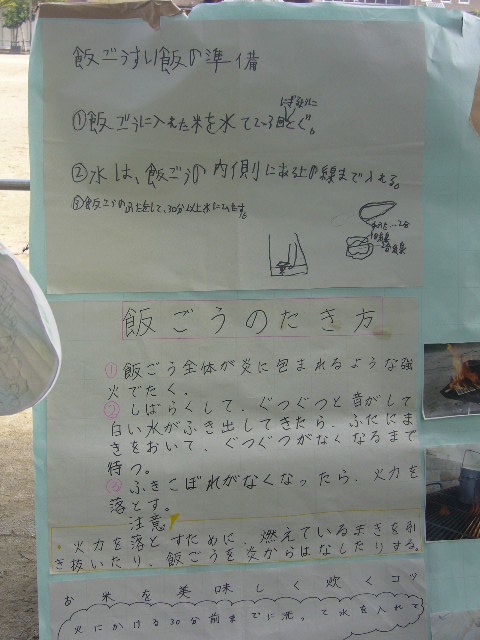 飯ごうすい飯の準備
①飯ごうに入れた米を水で2〜3回とぐ。
②水は、飯ごうの内側にある上の線まで入れる。
③飯ごうのふたをして、30分以上水にひたす。
飯ごうのたき方
①飯ごう全体が炎に包まれるような強
火でたく。
②しばらくして、ぐつぐつと音がして
白い水がふき出してきたら、ふたにま
きをおいて、ぐつぐつがなくなるまで
待つ。
③ふきこぼれがなくなったら、火力を
落とす。
注意
・火力を落とすために、燃えているまきを引
き抜いたり、飯ごうを炎からはなしたりする。
お米を美味しく炊くコツ
火にかける30分前までに洗って水を入れて